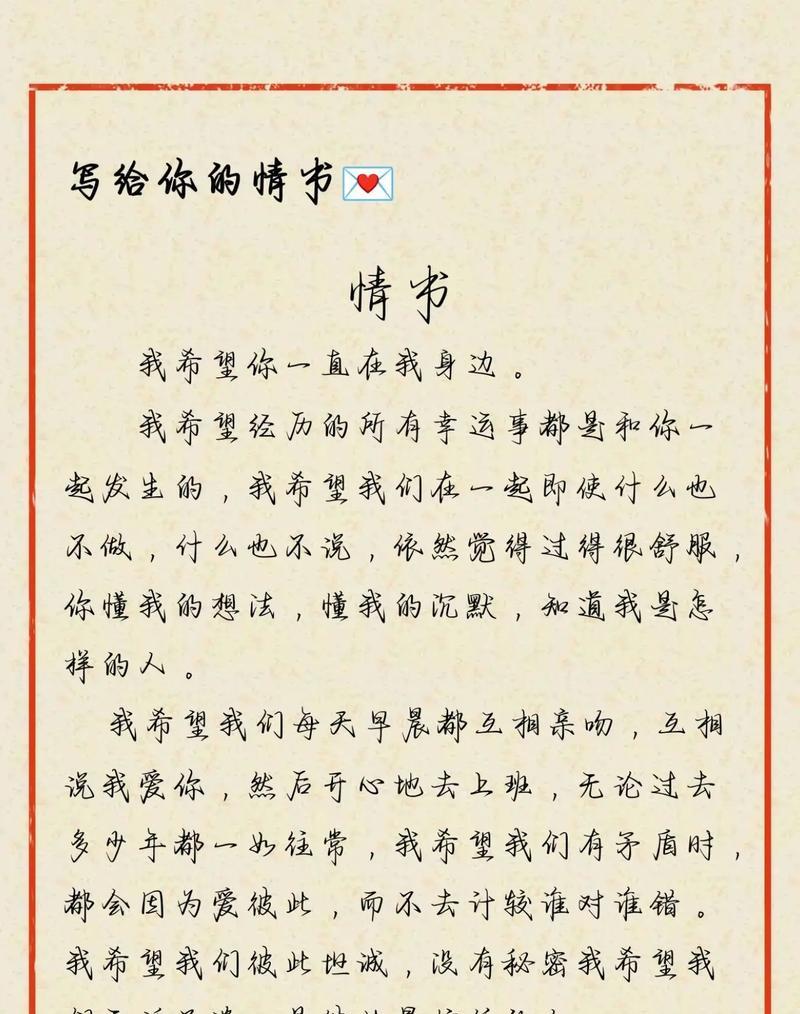 写给你的情书💌
情书
我希望你一直在我身边。
我希望经历的所有幸运事都是和你一
起发生的，我希望我们在一起即使什么也
不做，什么也不说，依然觉得过得很舒服，
你懂我的想法，懂我的沉默，知道我是怎
样的人。
我希望我们每天早晨都互相亲吻，互相
说我爱你，然后开心地去上班，无论过去
多少年都一如往常，我希望我们有矛盾时，
都会因为爱彼此，而不去计较谁对谁错。
我希望我们彼此坦诚，没有秘密我希望我